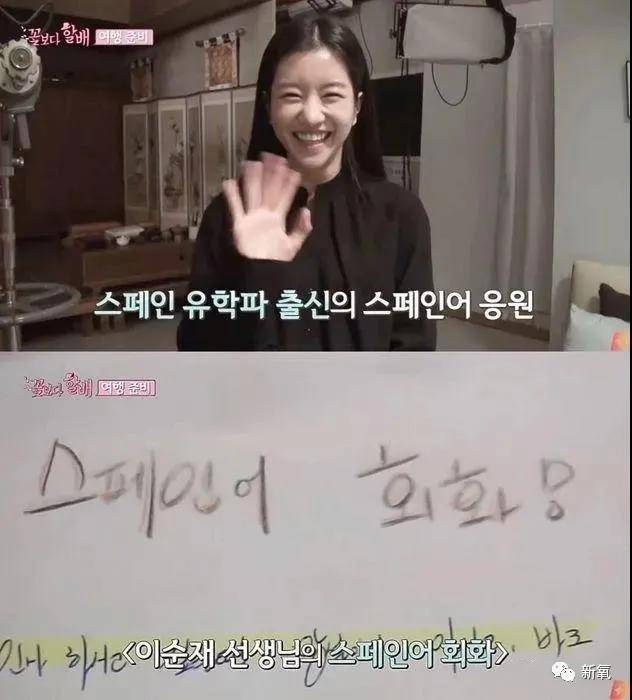 꽃보다할배 여행 준비
스페인 유학파 출신의 스페인어 응원
꽃보다할배 여행 준비
스페인어 회화
<이순재 선생님의 스페인어 회화>
바로
新氧